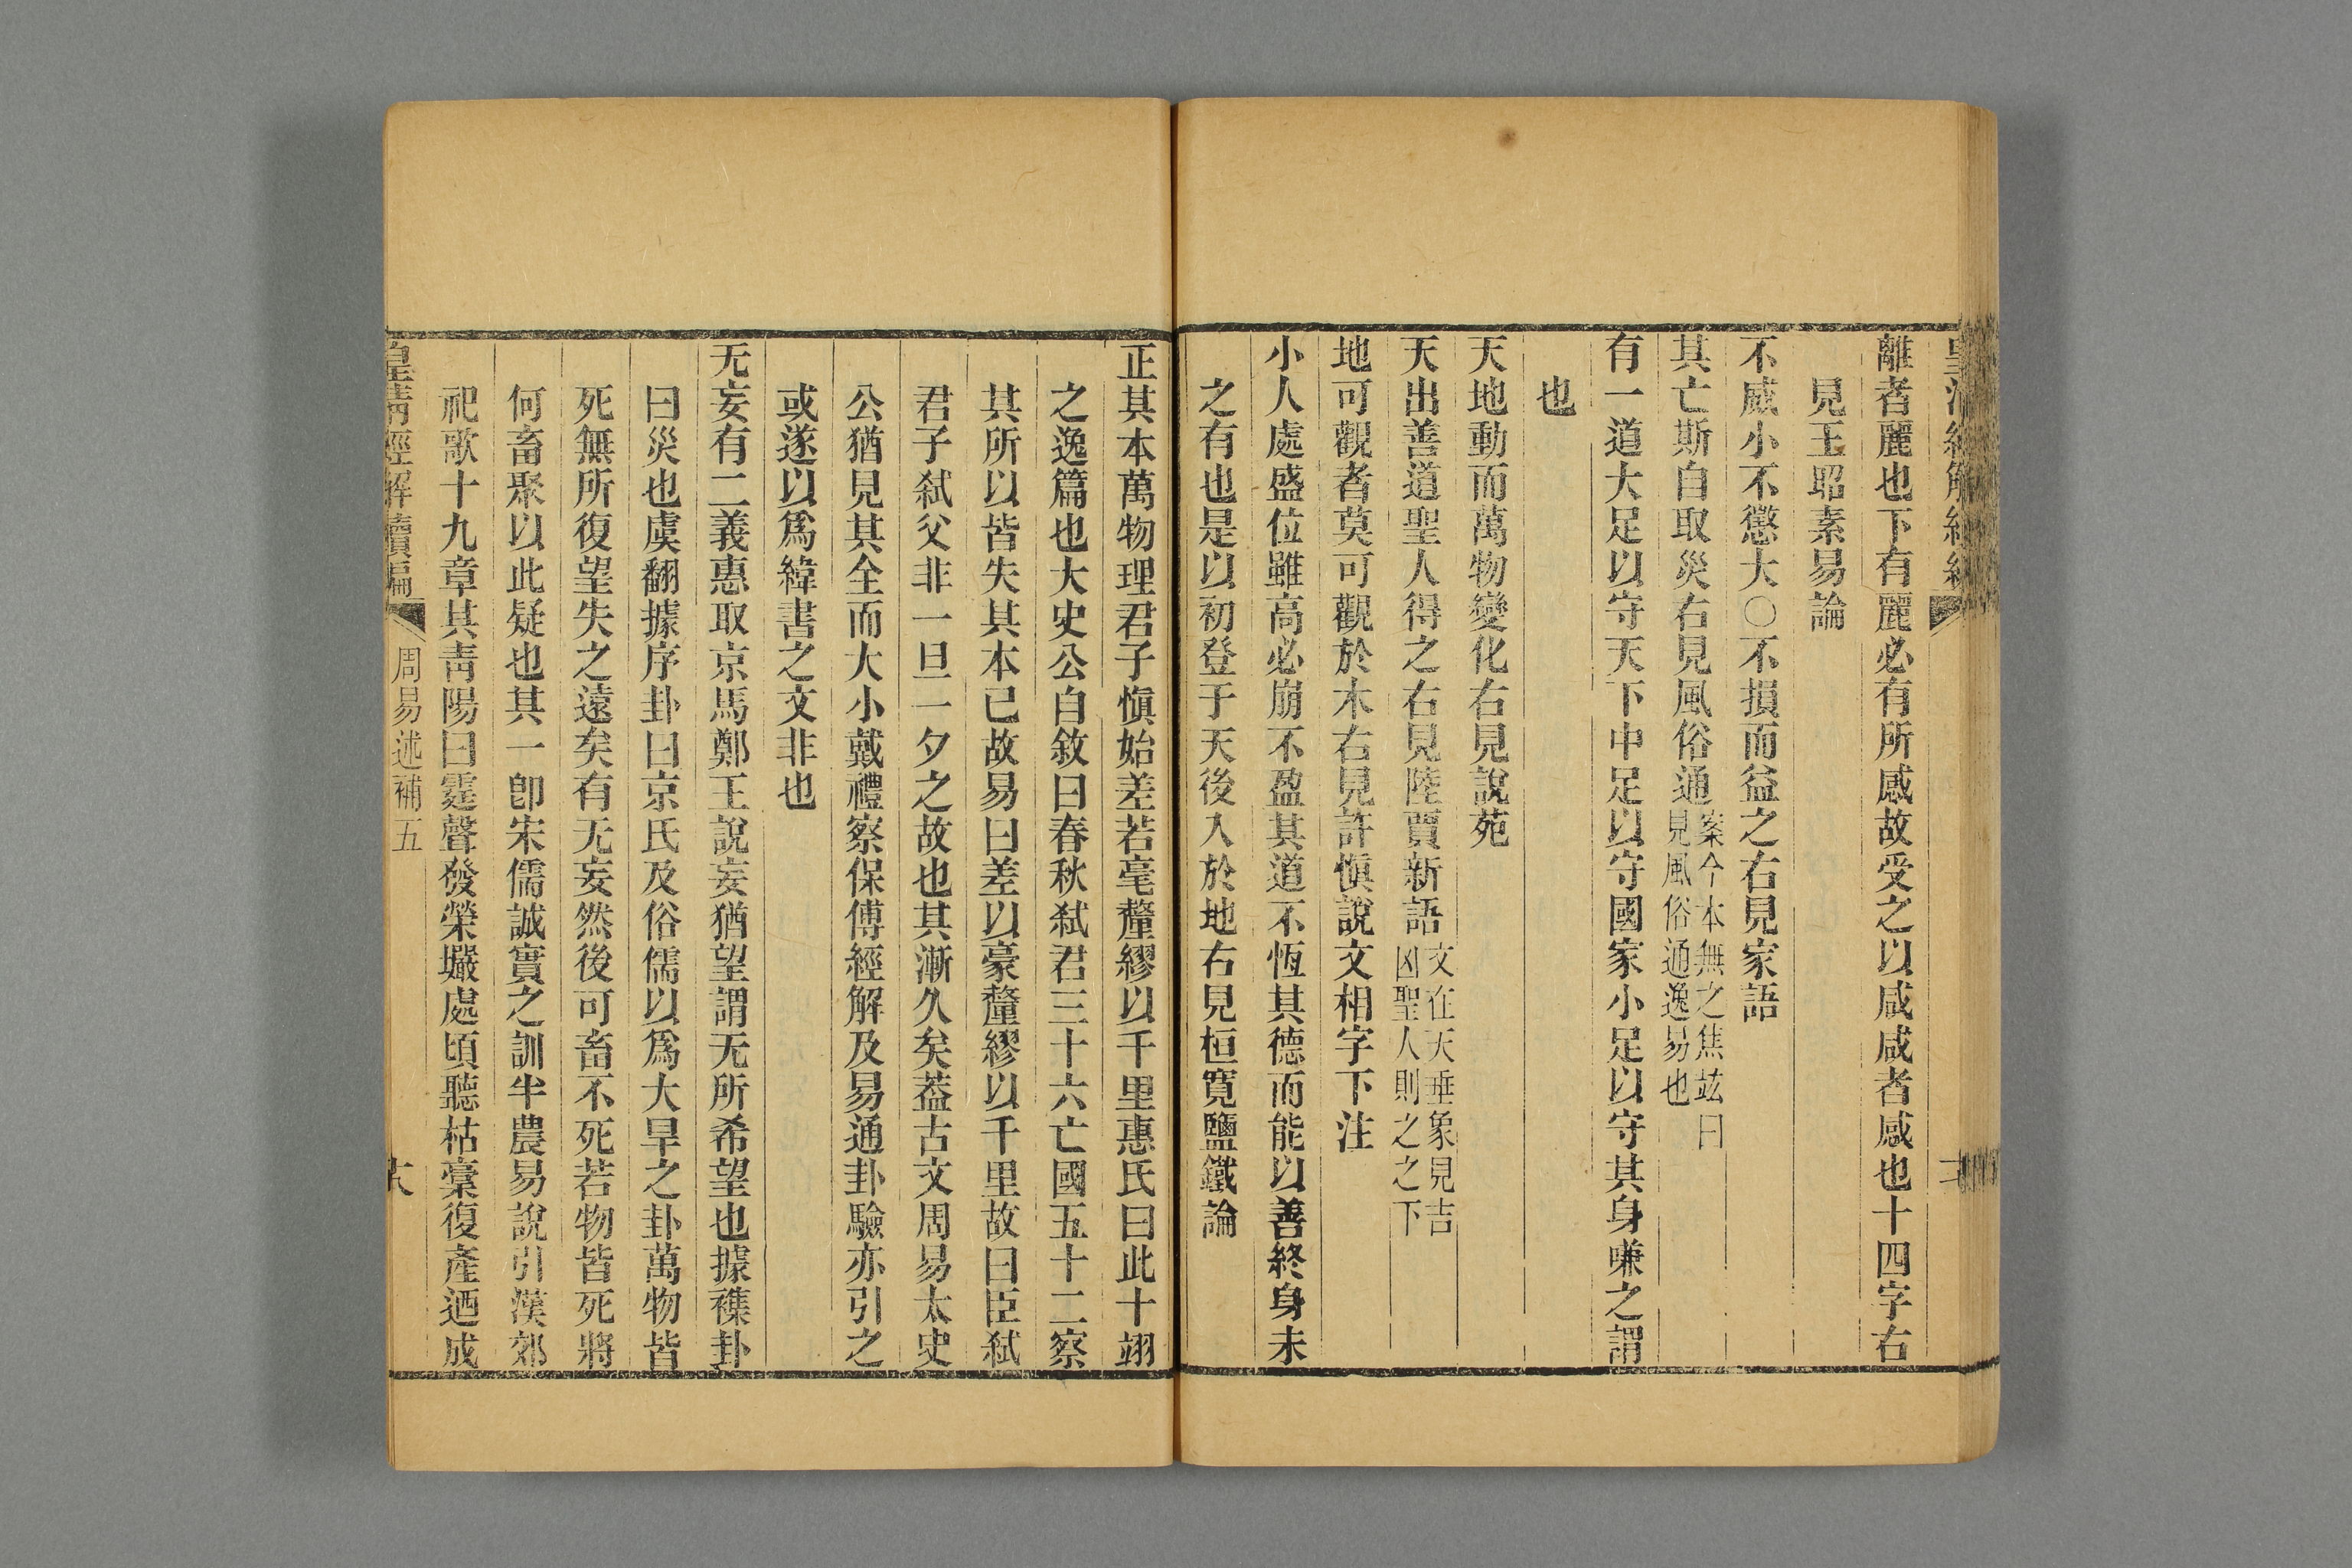 離者麗也下有麗必有所感故受之以咸咸者感也十四字右
見王昭素易論
不威小不懲大○不損而益之右見家語
其亡斯自取災右見風俗通案今本無之焦竑曰見風俗通逸易也
有一道大足以守天下中足以守國家小足以守其身嗛之謂
也
天地動而萬物變化右見說苑
天出善道聖人得之右見陸賈新語文在天垂象見吉凶聖人則之之下
地可觀者莫可觀於木右見許愼說文相字下注
小人處盛位雖高必崩不盈其道不恆其德而能以善終身未
之有也是以初登于天後入於地右見桓寬鹽鐵論
正其本萬物理君子愼始差若毫釐繆以千里惠氏曰此十翊
之逸篇也大史公自敘曰春秋弑君三十六亡國五十二察
其所以皆失其本已故易曰差以豪釐繆以千里故曰臣弑
君子弑父非一旦一夕之故也其漸久矣葢古文周易太史
公猶見其全而大小戴禮察保傅經解及易通卦驗亦引之
或遂以爲緯書之文非也
无妄有二義惠取京馬鄭王說妄猶望謂无所希望也據襍卦
曰災也虞翻據序卦曰京氏及俗儒以爲大旱之卦萬物皆
死無所復望失之遠矣有无妄然後可畜不死若物皆死將
何畜聚以此疑也其一卽宋儒誠實之訓半農易說引漢郊
祀歌十九章其靑陽曰霆聲發榮壧處頃聽枯稾復產迺成
皇淸經解續編
周易述補五